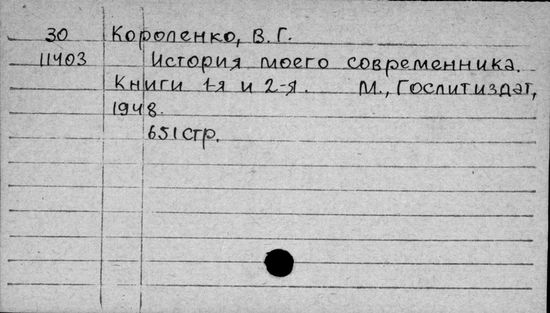 30 Короленко, В. Г.
11403 История моего современника.
Книги 1-я и 2-я. М., Гослитиздат,
1948.
651 стр.